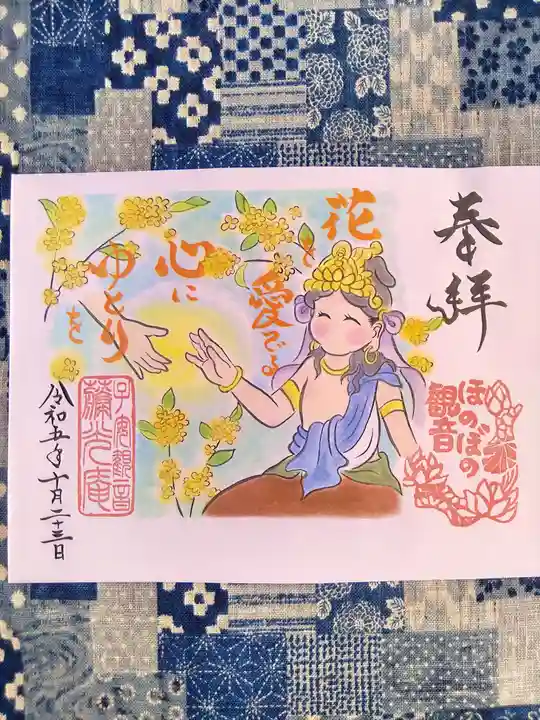 奉拝
ほのぼの
観音
花を愛でる
心に
ゆとりを
子安観音
蘭光庵
令和五年十月二十三日